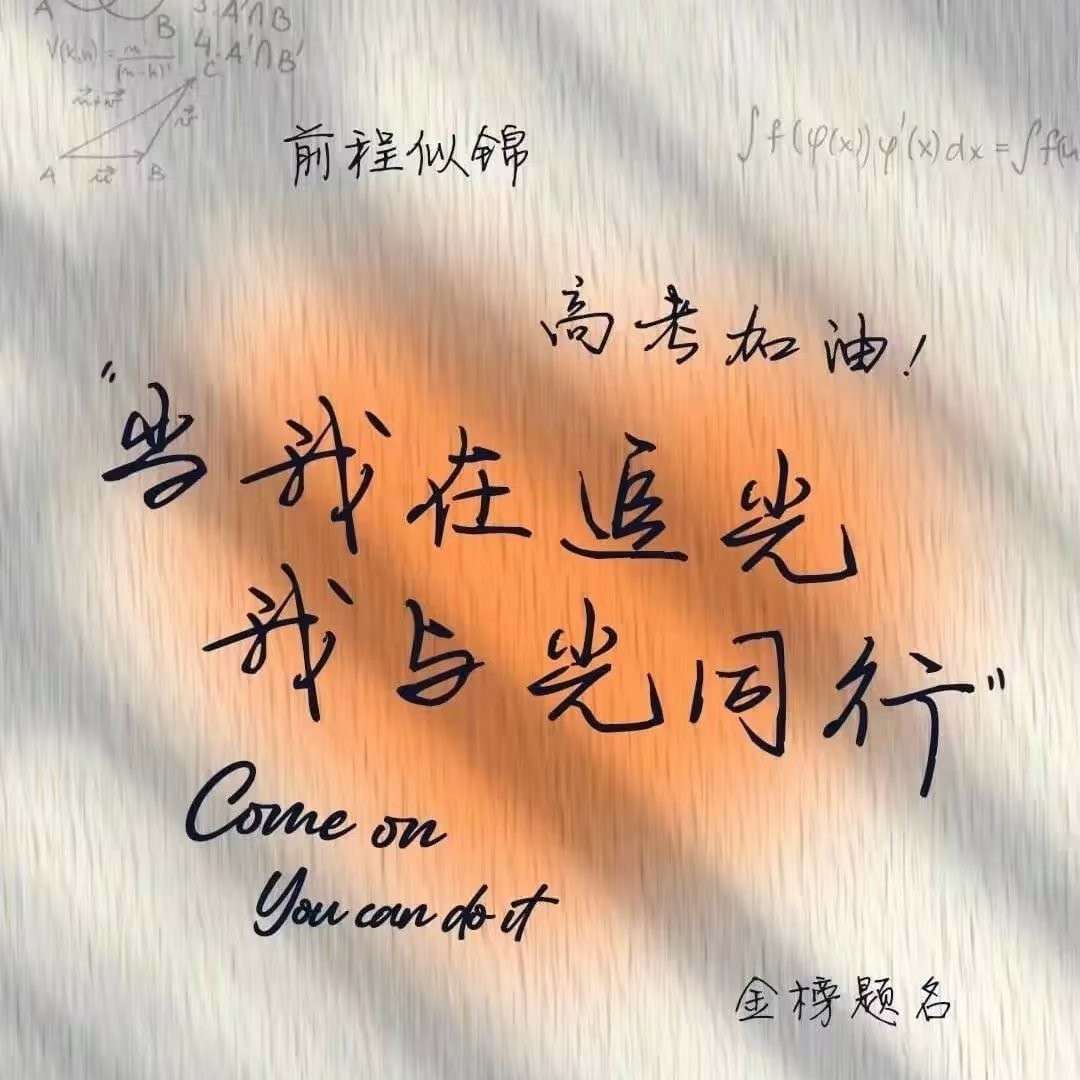 A
B
3. A'∩B
4. A'∩B'
C
A
B
前程似锦
∫f(φ(x))φ'(x)dx=∫f(u
高考加油!
"当我在追光
我与光同行"
Come on
You can do it
金榜题名